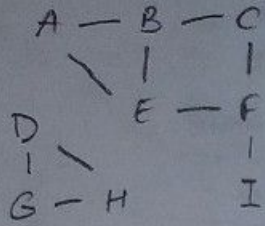 A B C
E F
D
G H I